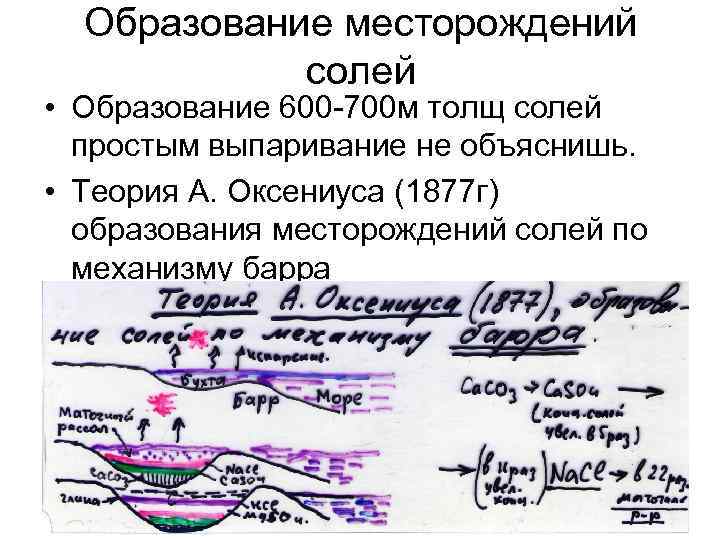 Образование месторождений
солей
• Образование 600-700м толщ солей
простым выпаривание не объяснишь.
• Теория А. Оксениуса (1877г)
образования месторождений солей по
механизму барра
Теория А. Оксениуса (1877), образова-
ние солей по механизму барра.
испарение.
бухта
Барр
Море
маточный
рассол
CaCO3
NaCl
CaSO4
глина
KCl
MgSO4
CaCO3 → CaSO4 →
(конц. солей
увел. в 5 раз)
→ (в 11 раз) NaCl → в 22 раз.
увелич.
конц.
маточный
р-р